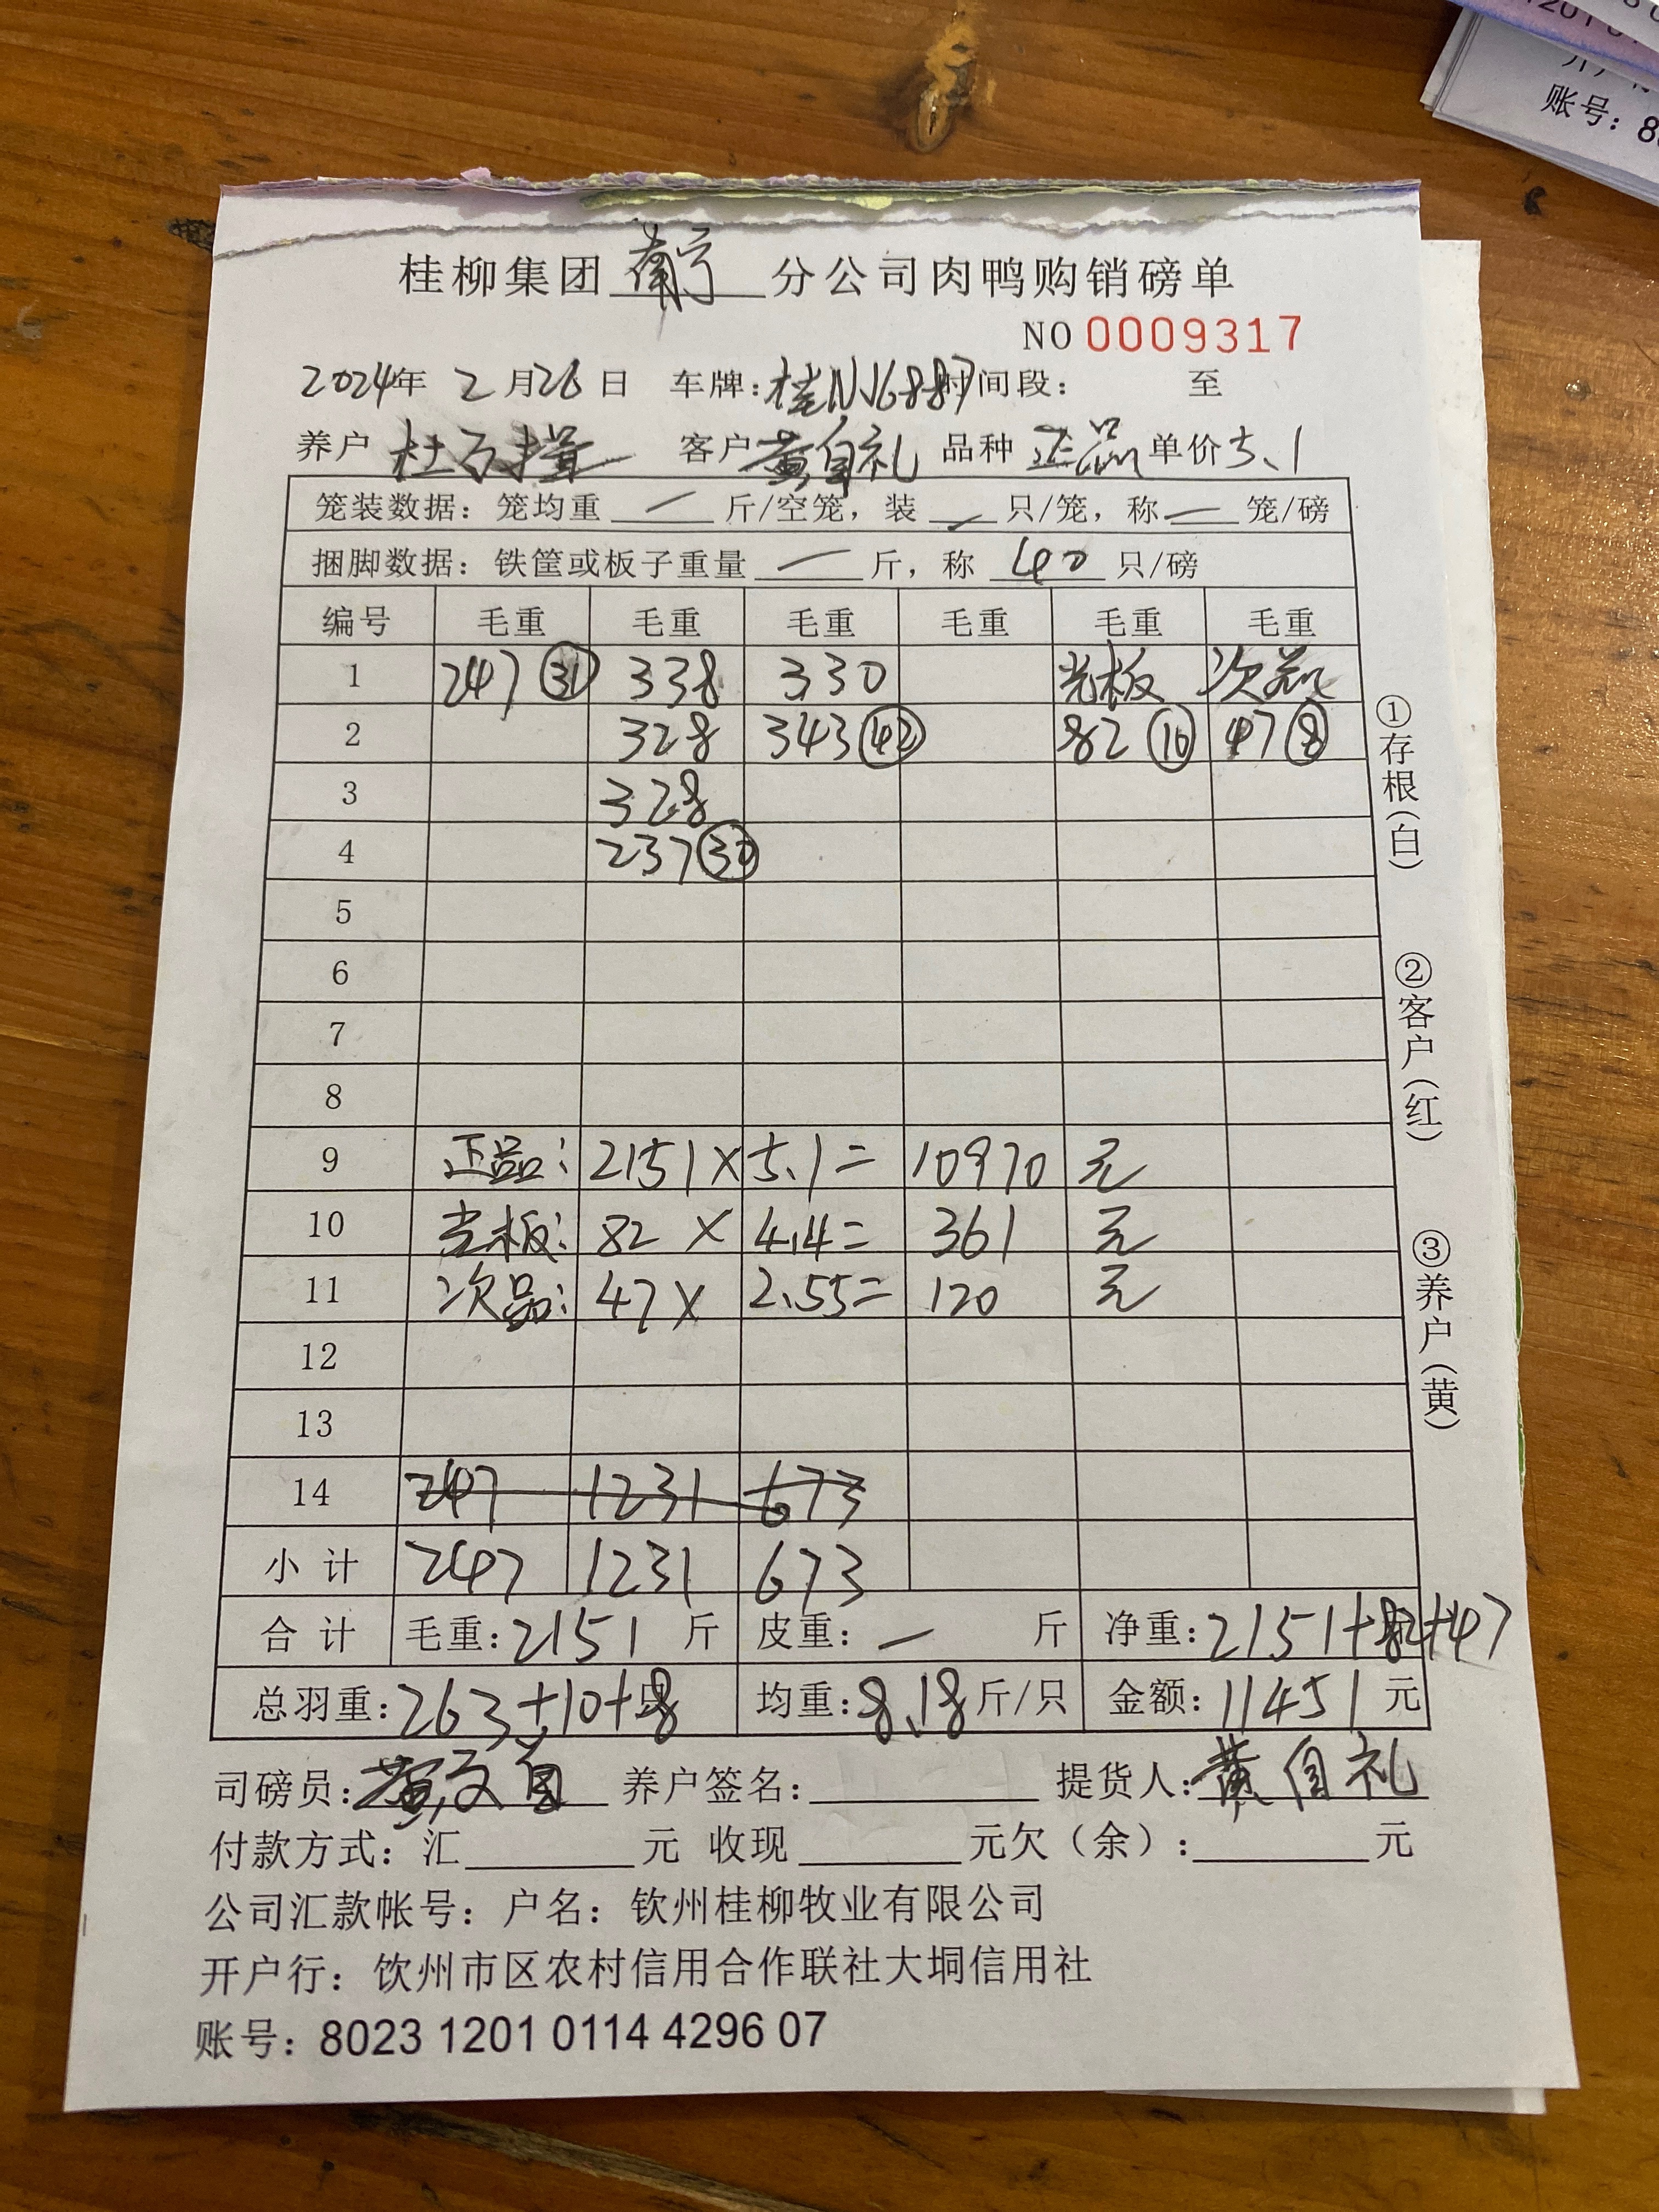 桂柳集团 南宁 分公司肉鸭购销磅单
NO 0009317
2024年 2月26日 车牌:桂NJ6887 时间段: 至
养户 杜 客户 黄自礼 品种 正品 单价 5.1
笼装数据: 笼均重 — 斤/空笼, 装 — 只/笼, 称 — 笼/磅
捆脚数据: 铁筐或板子重量 — 斤, 称 40 只/磅
编号 毛重 毛重 毛重 毛重 毛重 毛重
1 247 (31) 338 330 光板 次品
2 328 343 (42) 82 (10) 47 (8)
3 328
4 237 (30)
5
6
7
8
9 正品: 2151 × 5.1 = 10970 元
10 光板: 82 × 4.4 = 361 元
11 次品: 47 × 2.55 = 120 元
12
13
14 247 1231 673
小计 247 1231 673
合计 毛重: 2151 斤 皮重: — 斤 净重: 2151+82+47
总羽重: 263+10+8 均重: 8.18 斤/只 金额: 11451 元
①存根(白) ②客户(红) ③养户(黄)
司磅员: 黄 养户签名: 提货人: 黄自礼
付款方式: 汇 元 收现 元欠(余): 元
公司汇款帐号: 户名: 钦州桂柳牧业有限公司
开户行: 钦州市区农村信用合作联社大垌信用社
账号: 8023 1201 0114 4296 07
账号: 8